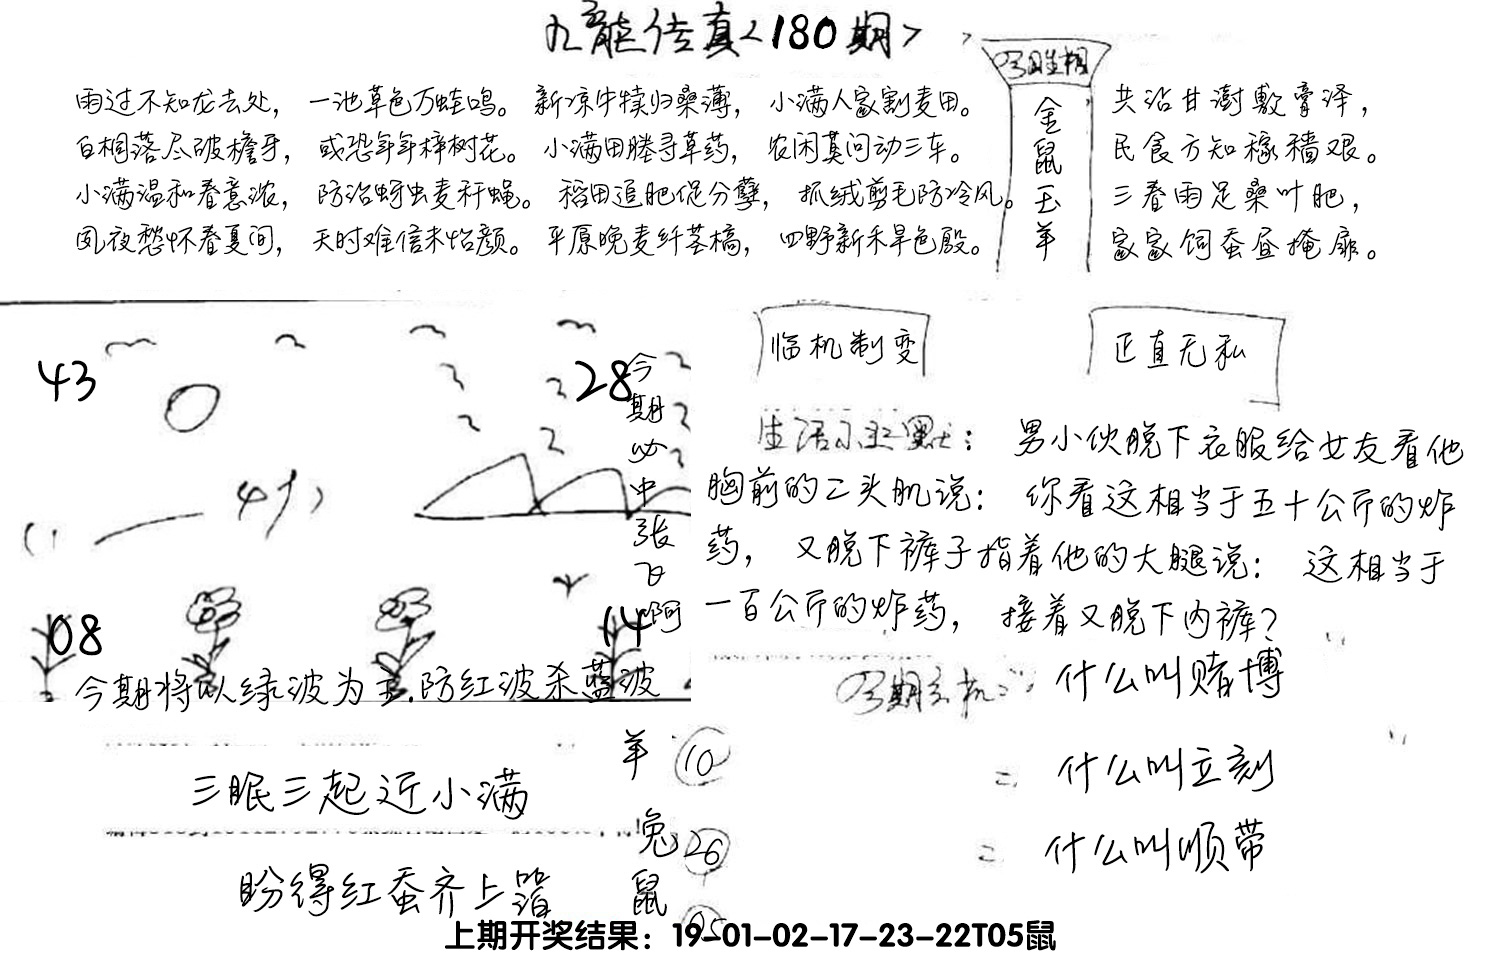 九龙传真<180期>
今日生相
金鼠玉羊
雨过不知龙去处，一池草色万蛙鸣。新凉牛犊归桑薄，小满人家割麦田。
白桐落尽破檐牙，或恐年年梓树花。小满田塍寻草药，农闲莫问动三车。
小满温和春意浓，防治蚜虫麦秆蝇。稻田追肥促分孽，抓绒剪毛防冷风。
夙夜愁怀春夏间，天时难信未怡颜。平原晚麦纤茎槁，四野新禾旱色殷。
共沾甘澍敷膏泽，
民食方知稼穑艰。
三春雨足桑叶肥，
家家饲蚕昼掩扉。
43
28
08
14
今期必中张飞啊
今期将以绿波为主.防红波杀蓝波
临机制变
正直无私
生活小幽默：男小伙脱下衣服给女友看他
胸前的二头肌说：你看这相当于五十公斤的炸
药，又脱下裤子指着他的大腿说：这相当于
一百公斤的炸药，接着又脱下内裤？
今期玄机一：什么叫赌博
二 什么叫立刻
二 什么叫顺带
三眠三起近小满
盼得红蚕齐上
羊 10
兔 26
鼠 05
上期开奖结果：19-01-02-17-23-22T05鼠